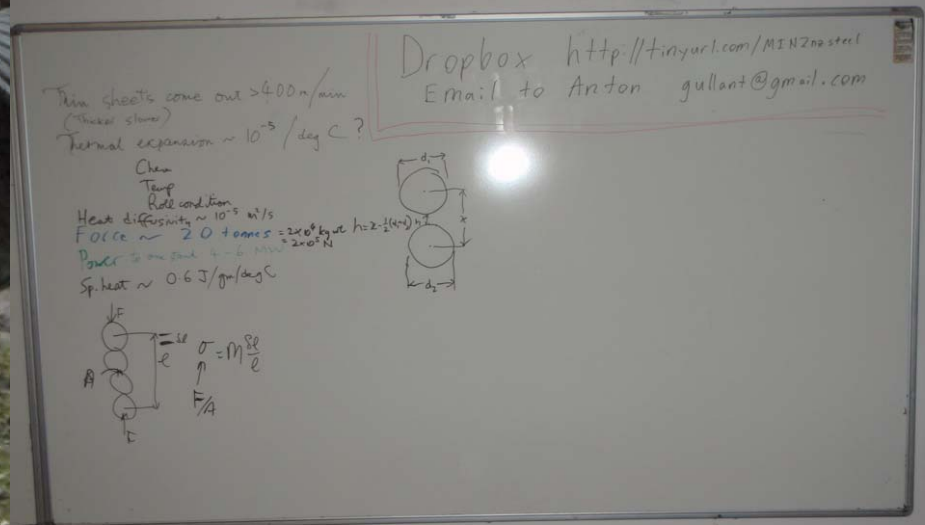 Dropbox http://tinyurl.com/MINZnzsteel
Email to Anton gullant@gmail.com
Thin sheets come out >400m/min
(Thicker slower)
Thermal expansion ~ 10⁻⁵ /deg C ?
Chem
Temp
Roll condition
Heat diffusivity ~ 10⁻⁵ m²/s
Force ~ 20 tonnes = 2×10⁴ kg wt
= 2×10⁵ N
Power to one 4-6 MW
Sp. heat ~ 0.6 J/gm/deg C
d₁
h
x
d₂
F
δl
l
A
F
σ = M δl/l
F/A